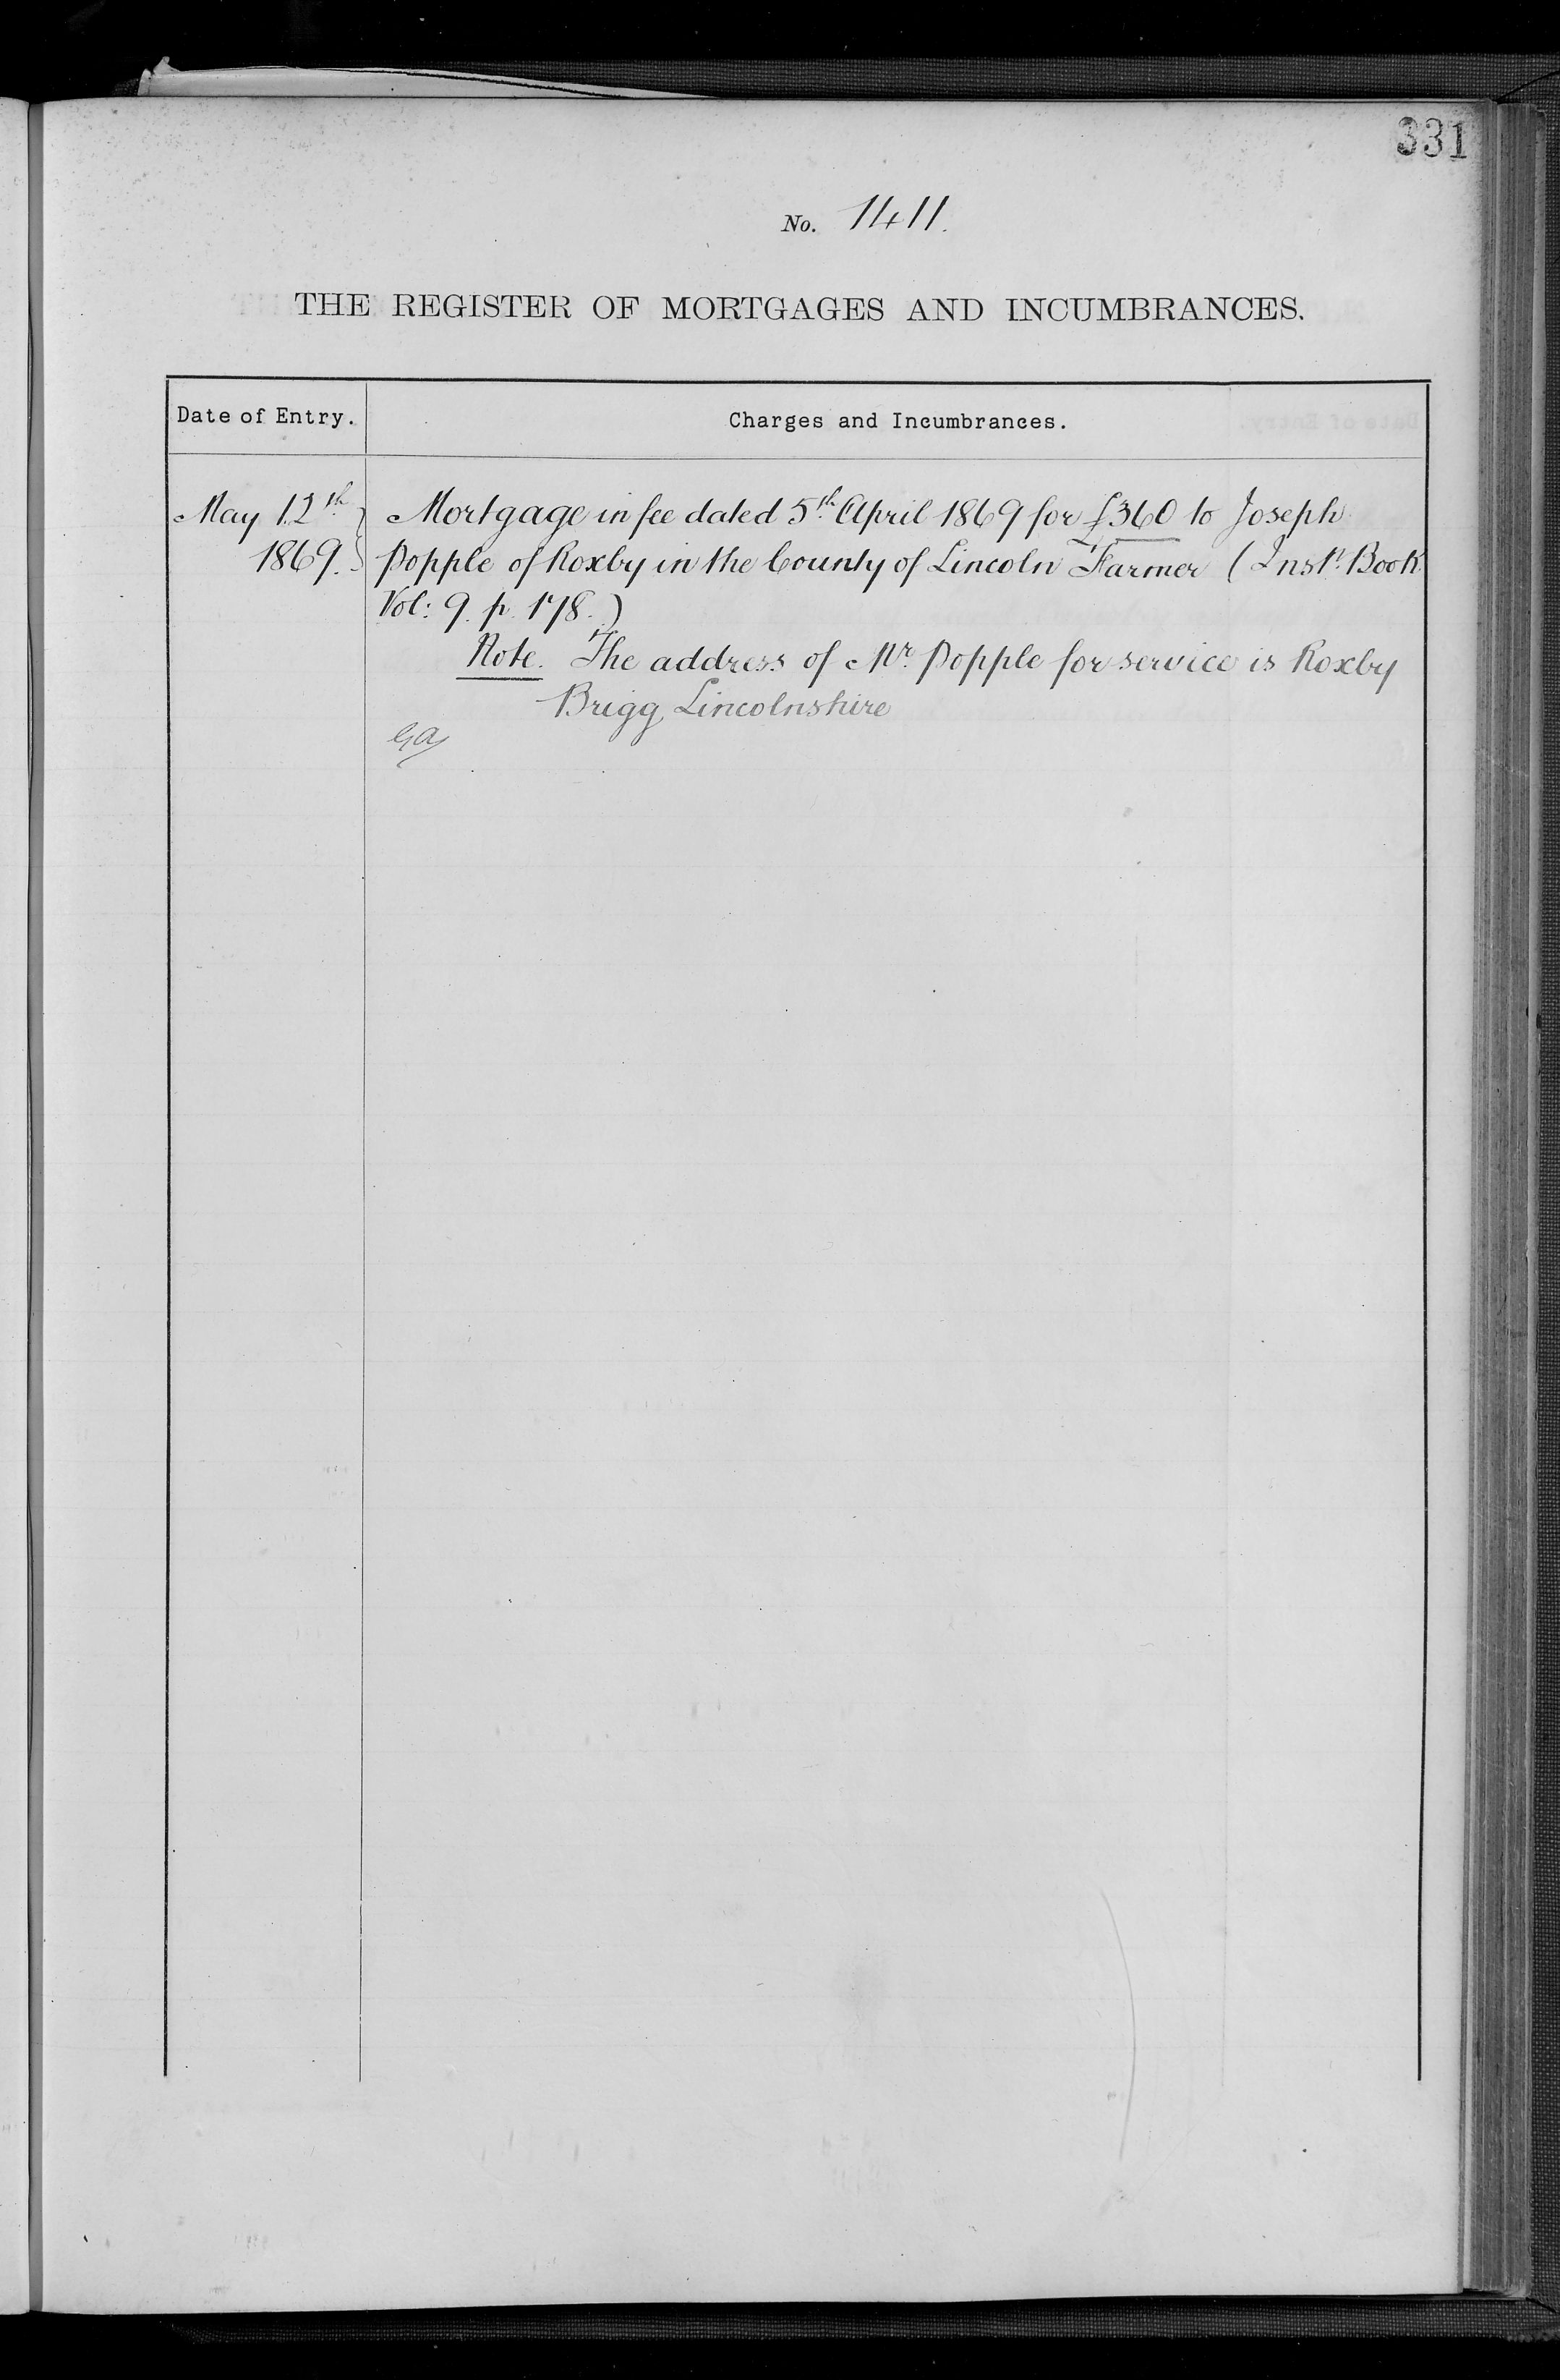 331
No. 1411.
THE REGISTER OF MORTGAGES AND INCUMBRANCES.
Date of Entry.
Charges and Incumbrances.
May 12th
1869.
Mortgage in fee dated 5th April 1869 for £360 to Joseph
Popple of Roxby in the County of Lincoln Farmer (Inst. Book
Vol: 9. p. 178.)
Note. The address of Mr. Popple for service is Roxby
Brigg Lincolnshire